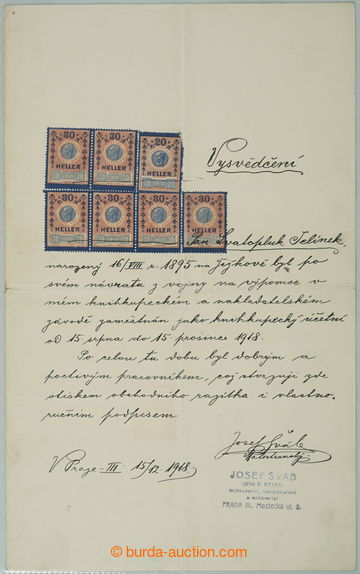 30 30 20
HELLER HELLER HELLER
30 30 30 30
HELLER HELLER HELLER HELLER
Vysvědčení
Pan Svatopluk Jelínek
narozený 16/VIII r. 1895 na Žižkově byl po
svém návratu z vojny na výpomoc v
mém knihkupeckém a nakladatelském
závodě zaměstnán jako knihkupecký účetní
od 15 srpna do 15 prosince 1918.
Po celou tu dobu byl dobrým a
poctivým pracovníkem, což stvrzuji zde
otiskem obchodního razítka i vlastno-
ručním podpisem
Josef Šváb
V Praze-III. 15/12 1918
JOSEF ŠVÁB
(DŘÍV F. KYTKA)
knihkupectví, nakladatelství
a antikvariát
PRAHA III., Mostecká ul. 9.
© burda-auction.com